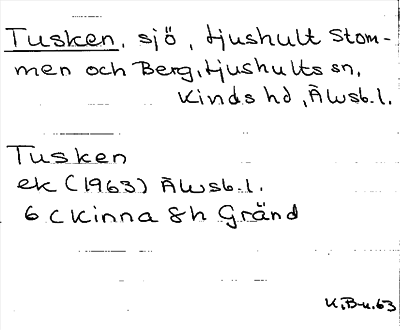 Tusken, sjö, Ljushult Stom-
men och Berg, Ljushults sn,
Kinds hd, Älvsb. l.
Tusken
ek (1963) Älvsb. l.
6 C Kinna 8h Gränd
K.B-u.63